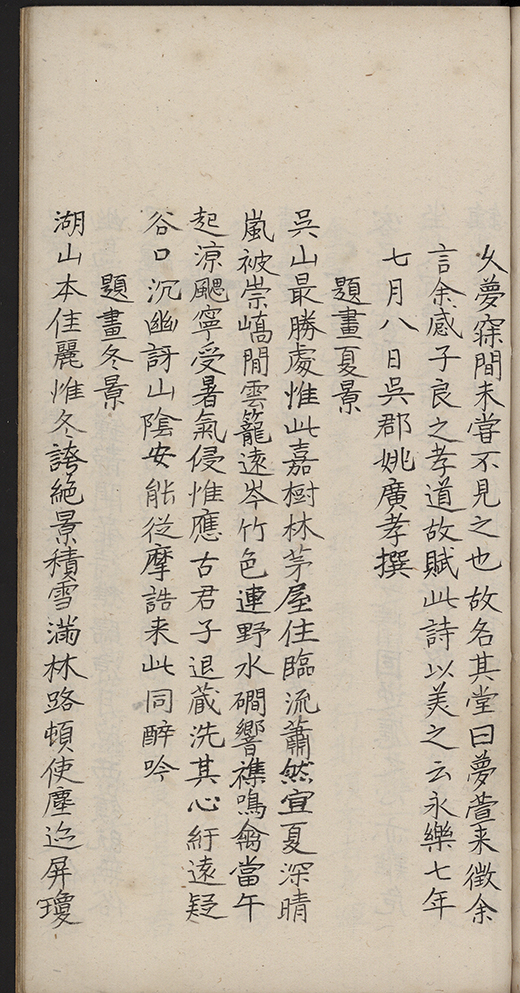 乆夢寐間未嘗不見之也故名其堂曰夢萱来徵余
言余感子良之孝道故賦此詩以美之云永樂七年
七月八日吳郡姚廣孝撰
題畫夏景
吳山最勝處惟此嘉樹林茅屋住臨流蕭然宜夏深晴
嵐被崇嶠閒雲籠遠岑竹色連野水磵響襍鳴禽當午
起涼颸寧受暑氣侵惟應古君子退蔵洗其心紆遠疑
谷口沉幽訝山陰安能從摩詰来此同醉吟
題畫冬景
湖山本佳麗惟冬誇絶景積雪滿林路頓使塵迹屏瓊